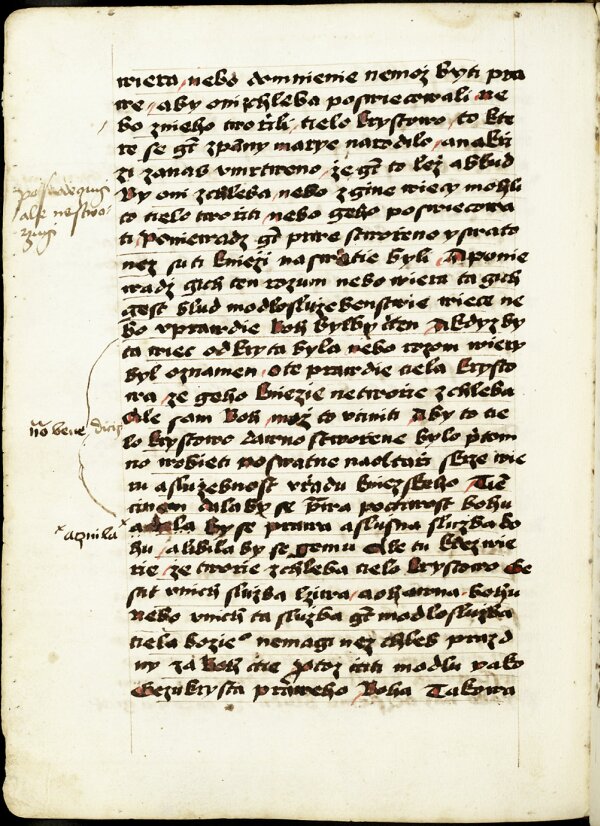 wiera, nebo domnienie nemoz byti pra
we, aby oni zchleba poswiecowali ne
bo zneho tworili, tielo krystowo, to kte
re se gt zpanny marye narodilo, anakri
zi zanas vmrtweno, ze gt to lez a blud
By oni zchleba, nebo zgine wiecy mohli
to tielo tworiti, nebo geho poswiecowa
ti, Poniewadz gt prwe stworeno yswato
nez su ti kniezi naswietie byli, A ponie
wadz gich ten rozum nebo wiera ta gich
gest blud modlosluzebenstwie wiece ne
bo vprawdie Boh bylby cten, A kdyz by
ta wiec odkryta byla, nebo rozom wiery
byl oznamen, Ote prawdie tiela krysto
wa, ze geho kniezie networie zchleba
Ale sam Boh, moz to vciniti, Aby to tie
lo krystowo dawno stworene bylo pritom
no wobieti poswatne naoltari skrze wie
ru asluzebnost vradu kniezskeho, Tiem
cinem dalaby se prawa poctiwost bohu
adala by se prawa aslusna sluzba bo
hu, alibila by se gemu, Ale tu kdez wie
rie, ze tworie zchleba tielo krystowo Ge
st vnich sluzba lziwa, aohawna bohu
nebo vnich ta sluzba gt modlosluzba
tiela bozieo nemagi nez chleb prazd
ny za Boh ctie, Protoz ctiti modlu yako
Gezukrysta praweho, Boha Takowa
poswiecugi
ale nestwo-
rzugi
no bene dicis
x aznila x